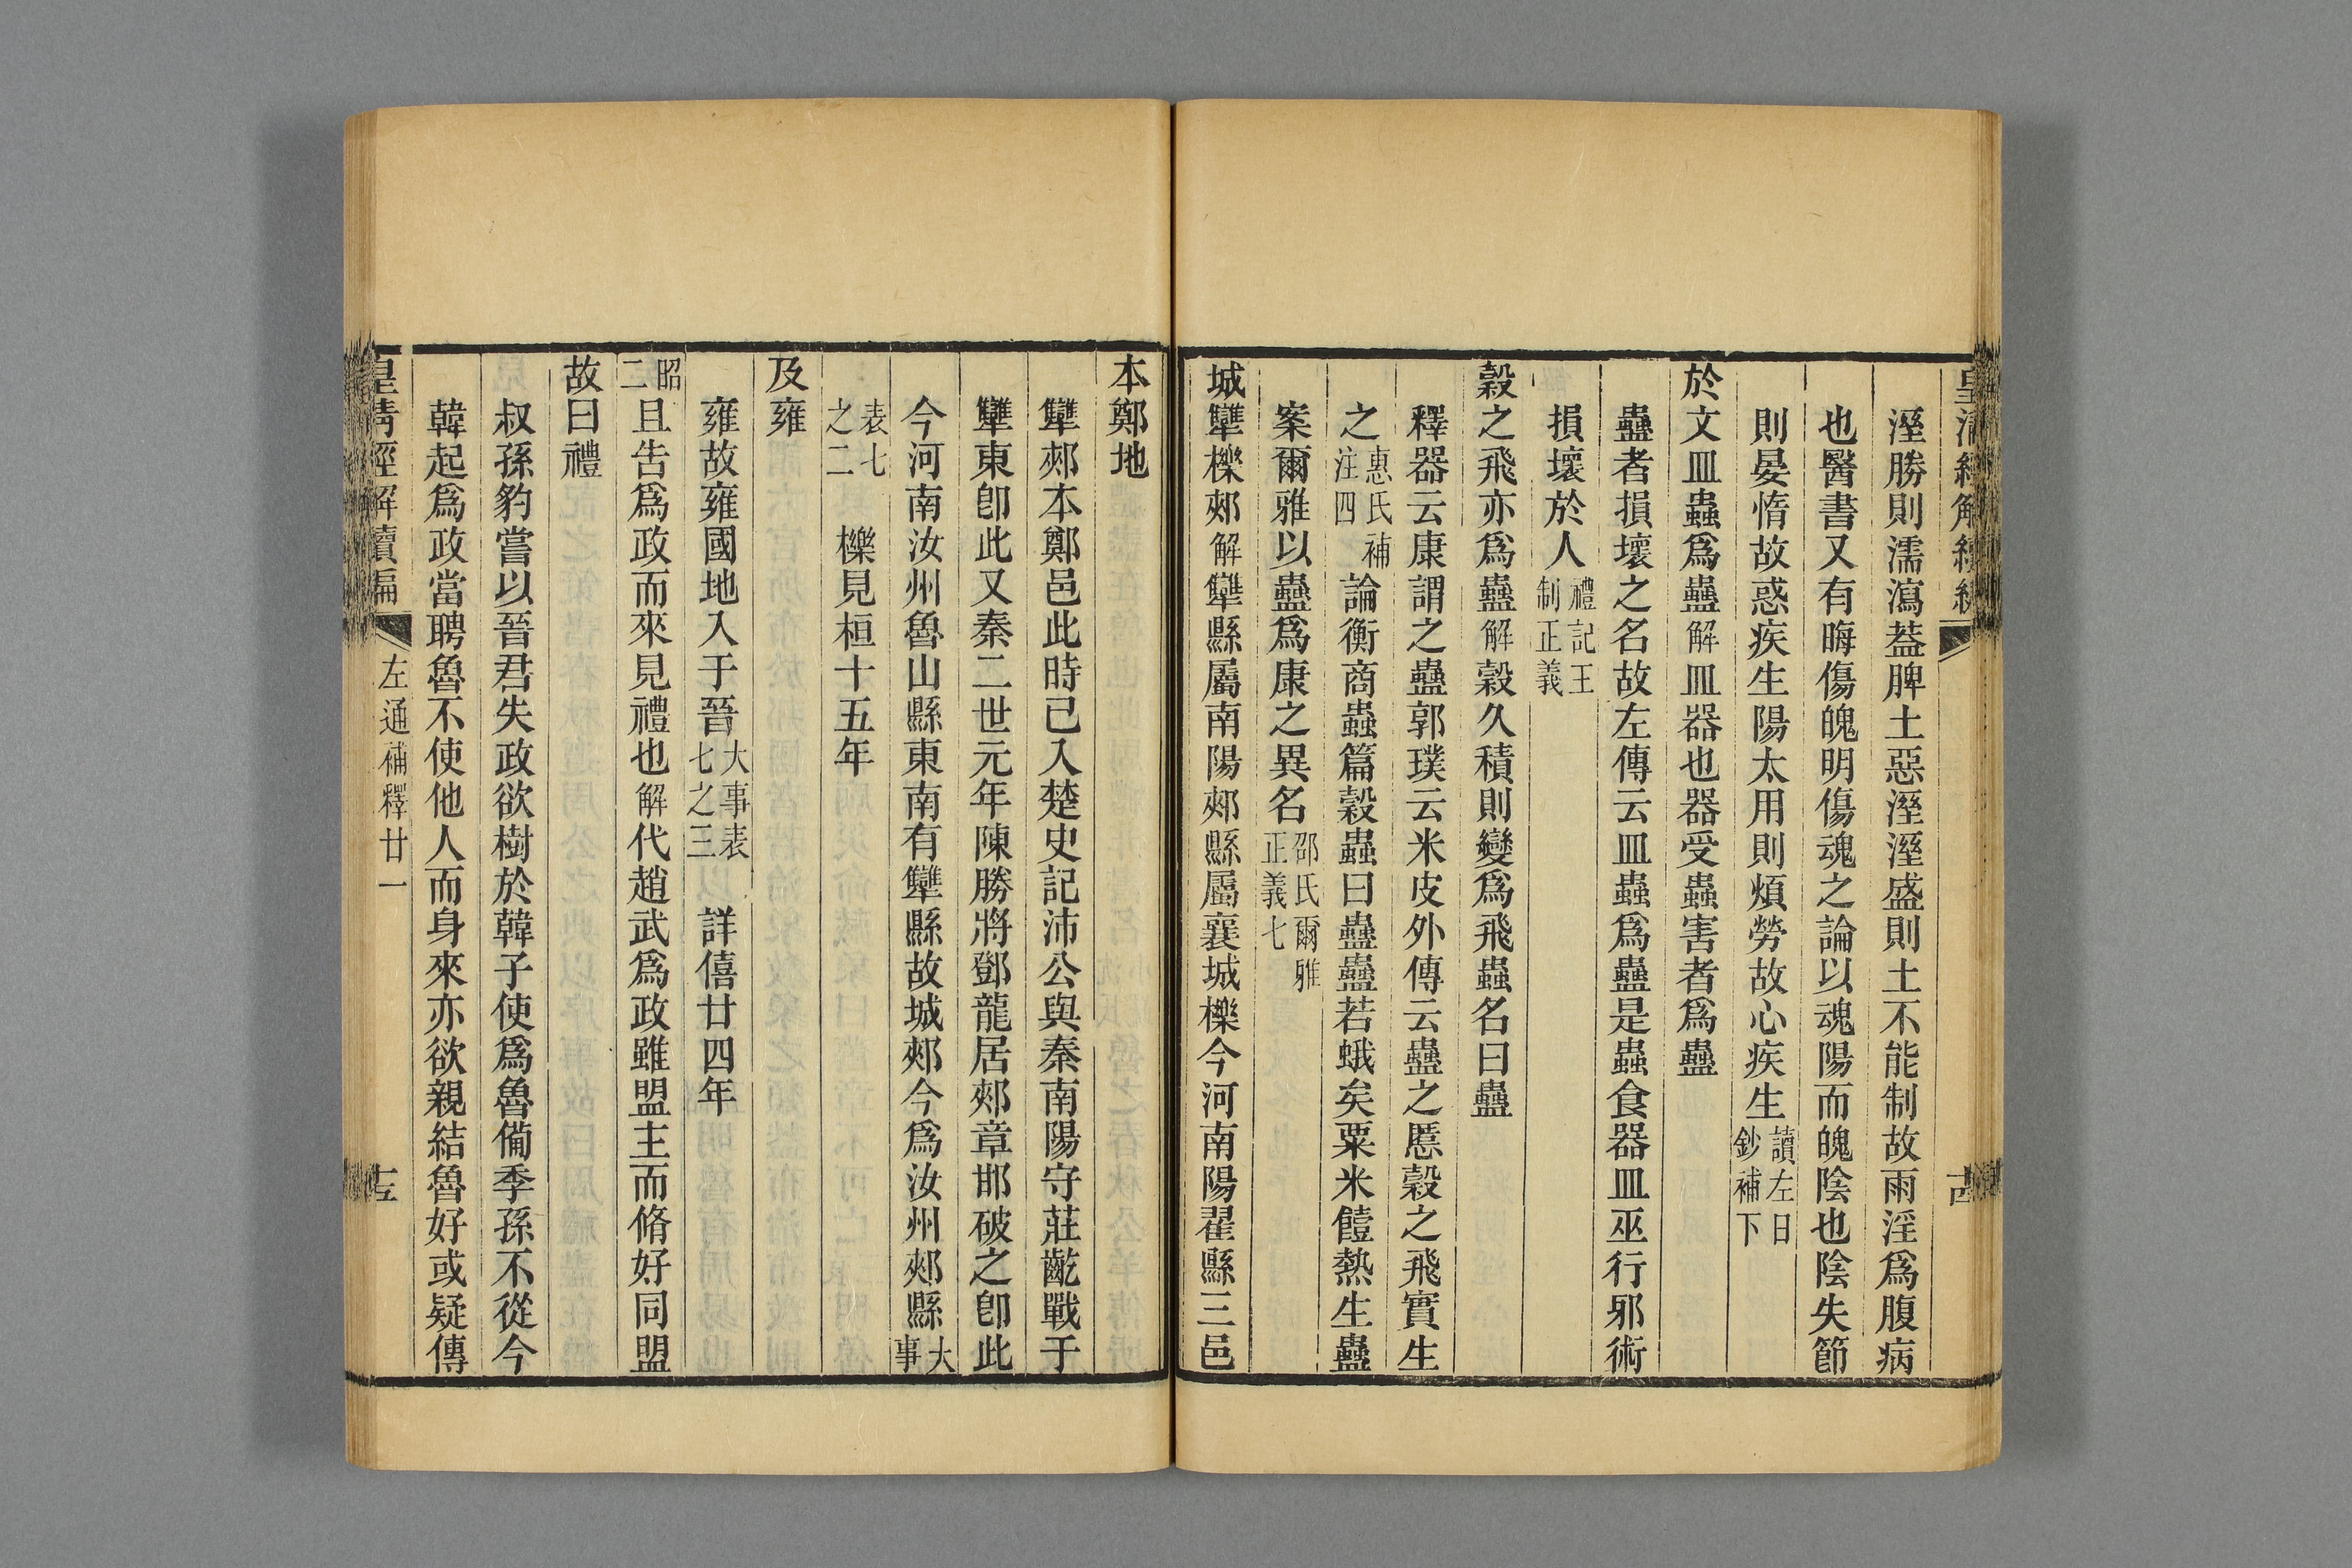 溼勝則濡瀉蓋脾土惡溼溼盛則土不能制故雨淫爲腹病
也醫書又有晦傷魄明傷魂之論以魂陽而魄陰也陰失節
則晏惰故惑疾生陽太用則煩勞故心疾生讀左日鈔補下
於文皿蟲爲蠱解皿器也器受蟲害者爲蠱
蠱者損壞之名故左傳云皿蟲爲蠱是蟲食器皿巫行邪術
損壞於人禮記王制正義
穀之飛亦爲蠱解穀久積則變爲飛蟲名曰蠱
釋器云康謂之蠱郭璞云米皮外傳云蠱之慝穀之飛實生
之惠氏補注四 論衡商蟲篇穀蟲曰蠱蠱若蛾矣粟米饐熱生蠱
案爾雅以蠱爲康之異名邵氏爾雅正義七
城犫櫟郟解犫縣屬南陽郟縣屬襄城櫟今河南陽翟縣三邑
本鄭地
犫郟本鄭邑此時已入楚史記沛公與秦南陽守莊齕戰于
犫東卽此又秦二世元年陳勝將鄧龍居郟章邯破之卽此
今河南汝州魯山縣東南有犫縣故城郟今爲汝州郟縣大事
表七之二 櫟見桓十五年
及雍
雍故雍國地入于晉大事表七之三 詳僖廿四年
昭二且告爲政而來見禮也解代趙武爲政雖盟主而脩好同盟
故曰禮
叔孫豹嘗以晉君失政欲樹於韓子使爲魯備季孫不從今
韓起爲政當聘魯不使他人而身來亦欲親結魯好或疑傳
皇清經解續編 左通補釋廿一